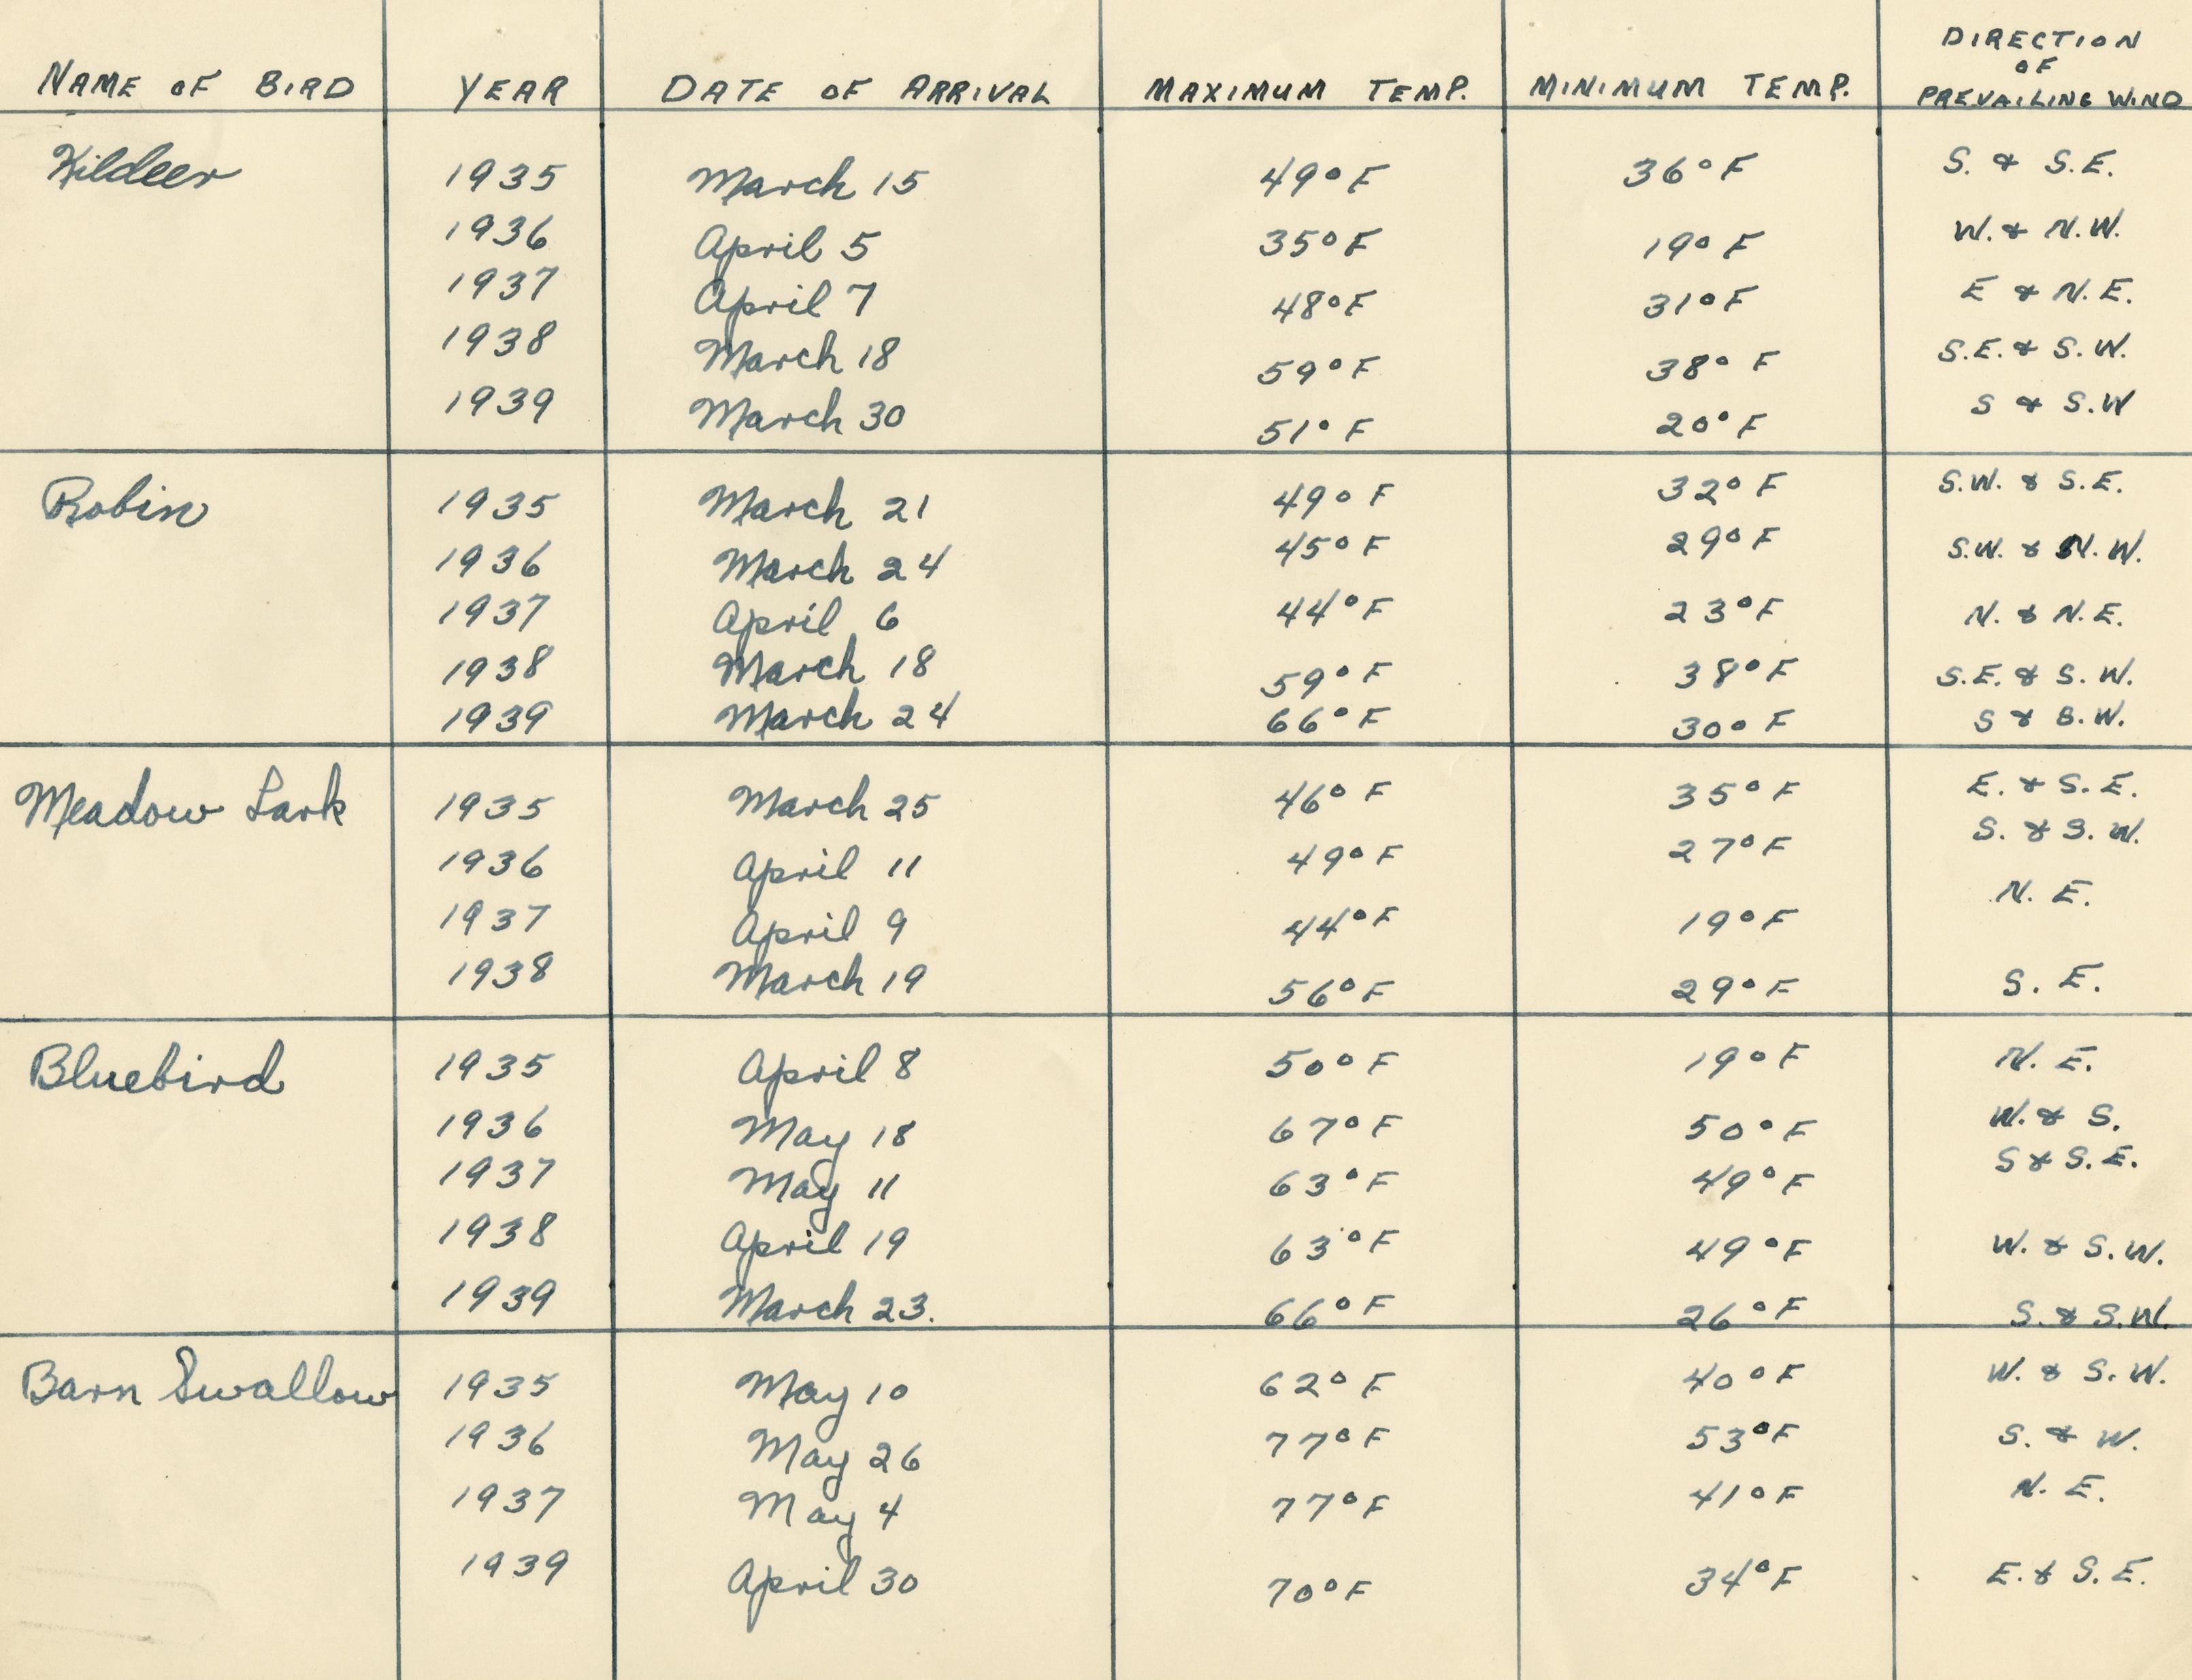 NAME OF BIRD YEAR DATE OF ARRIVAL MAXIMUM TEMP. MINIMUM TEMP. DIRECTION OF PREVAILING WIND
Kildeer 1935 March 15 49° F 36° F S. & S.E.
1936 April 5 35° F 19° F W. & N.W.
1937 April 7 48° F 31° F E & N.E.
1938 March 18 59° F 38° F S.E. & S.W.
1939 March 30 51° F 20° F S & S.W
Robin 1935 March 21 49° F 32° F S.W. & S.E.
1936 March 24 45° F 29° F S.W. & N.W.
1937 April 6 44° F 23° F N. & N.E.
1938 March 18 59° F 38° F S.E. & S.W.
1939 March 24 66° F 30° F S & S.W.
Meadow Lark 1935 March 25 46° F 35° F E. & S.E.
1936 April 11 49° F 27° F S. & S.W.
1937 April 9 44° F 19° F N.E.
1938 March 19 56° F 29° F S.E.
Bluebird 1935 April 8 50° F 19° F N.E.
1936 May 18 67° F 50° F W. & S.
1937 May 11 63° F 49° F S & S.E.
1938 April 19 63° F 49° F W. & S.W.
1939 March 23. 66° F 26° F S. & S.W.
Barn Swallow 1935 May 10 62° F 40° F W. & S.W.
1936 May 26 77° F 53° F S. & W.
1937 May 4 77° F 41° F N.E.
1939 April 30 70° F 34° F E. & S.E.